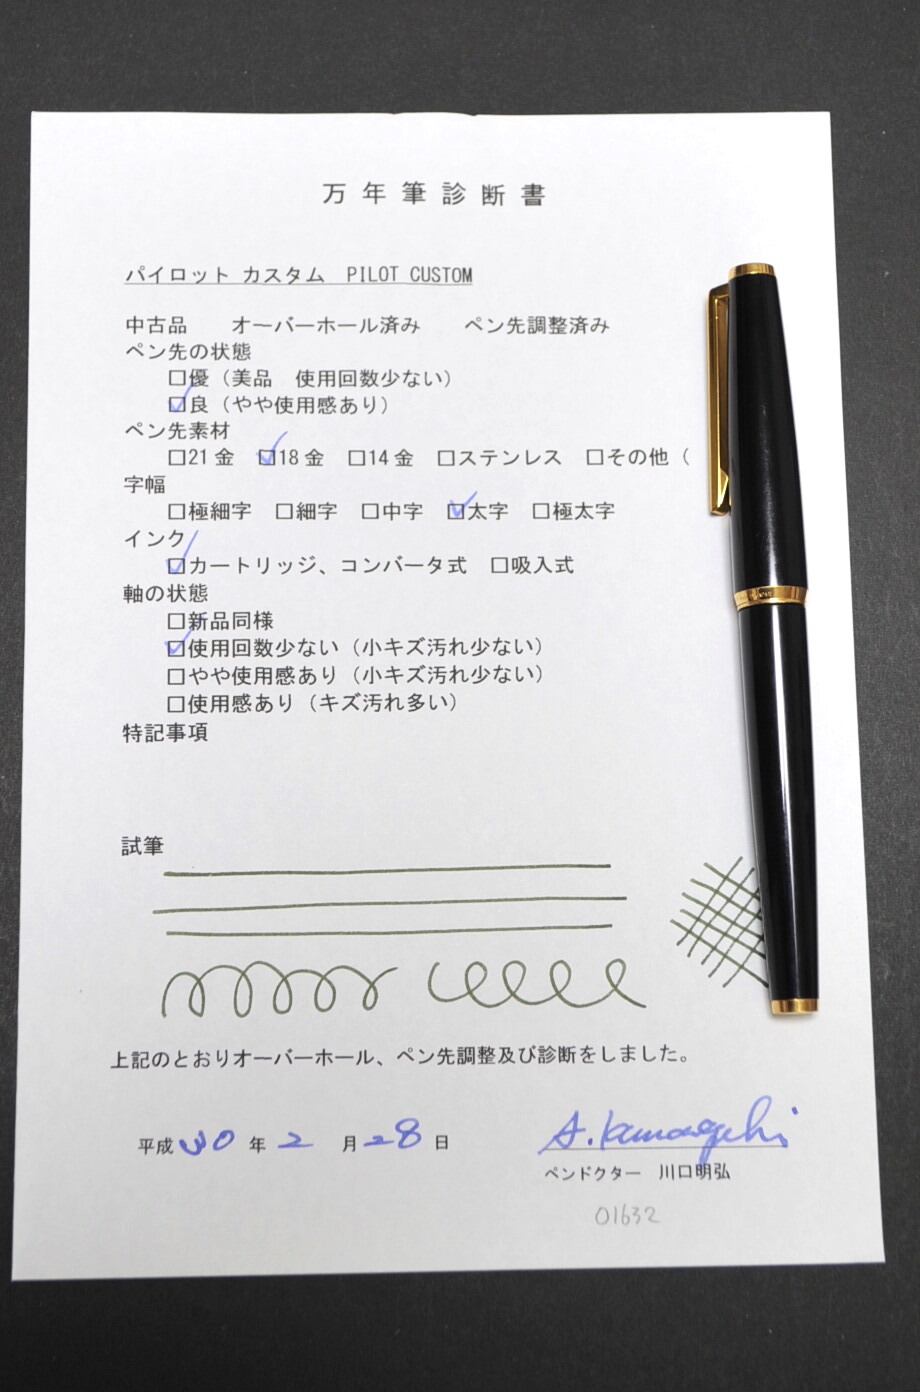 万年筆診断書
パイロット カスタム　PILOT CUSTOM
中古品　　オーバーホール済み　　ペン先調整済み
ペン先の状態
□優（美品　使用回数少ない）
☑良（やや使用感あり）
ペン先素材
□21金　☑18金　□14金　□ステンレス　□その他（
字幅
□極細字　□細字　□中字　☑太字　□極太字
インク
☑カートリッジ、コンバータ式　□吸入式
軸の状態
□新品同様
☑使用回数少ない（小キズ汚れ少ない）
□やや使用感あり（小キズ汚れ少ない）
□使用感あり（キズ汚れ多い）
特記事項
試筆
上記のとおりオーバーホール、ペン先調整及び診断をしました。
平成30年2月28日
A. Kawaguchi
ペンドクター　川口明弘
01632